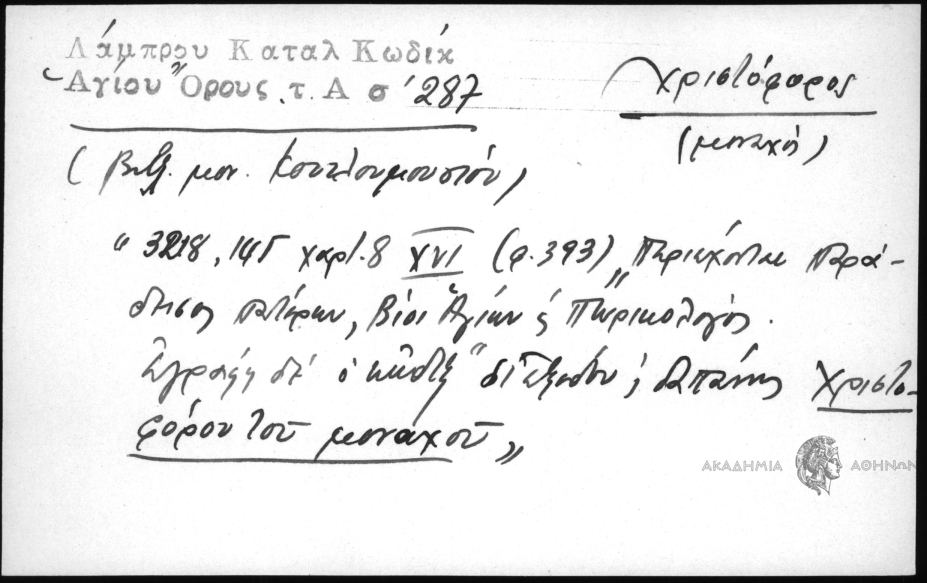 Λάμπρου Καταλ Κωδίκ
Ἁγίου Ὄρους τ. Α σ' 287
Χριστόφορος
(μοναχὸς)
(Βιβλ. μον. Κουτλουμουσίου)
" 3218, 145 χαρτ. 8 XVI (φ. 393) „Περιέχονται παρά-
δεισος πατέρων, Βίοι Ἁγίων ϛ Πωρικολόγος.
Ἐγράφη δὲ ὁ κῶδιξ " δι' ἐξόδου ϛ δαπάνης Χριστο-
φόρου τοῦ μοναχοῦ „
ΑΚΑΔΗΜΙΑ ΑΘΗΝΩΝ